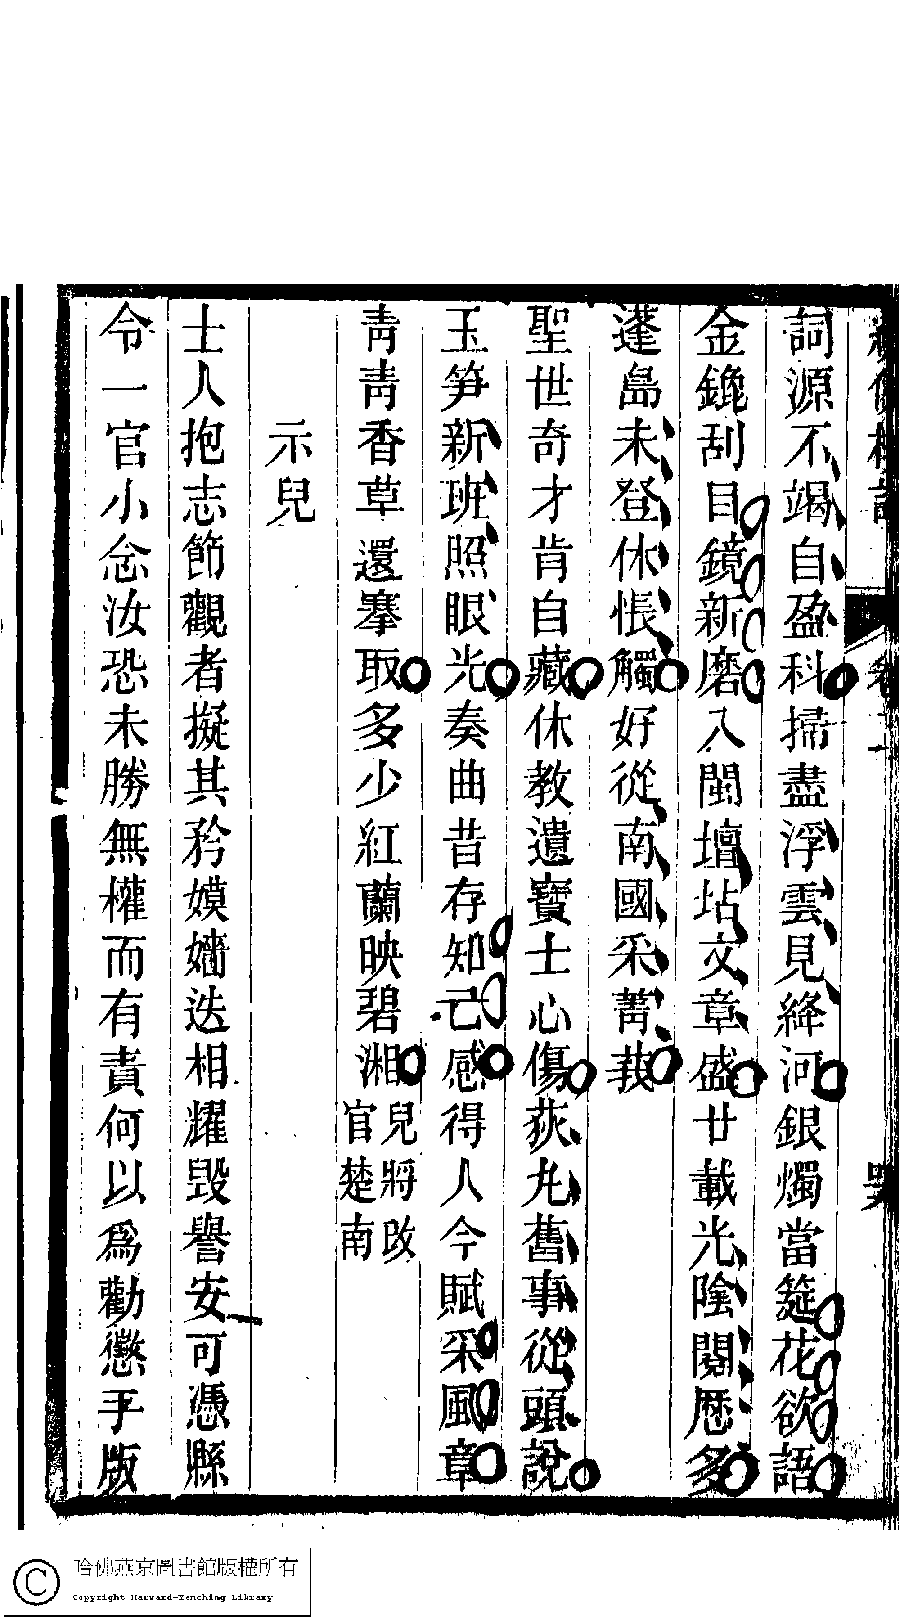 卷十
詞源不竭自盈科掃盡浮雲見絳河銀燭當筵花欲語
金鎞刮目鏡新磨入閩壇坫文章盛廿載光陰閱歷多
蓬島未登休悵觸好從南國采菁莪
聖世奇才肯自藏休教遺寶士心傷荻丸舊事從頭說
玉笋新班照眼光奏曲昔存知己感得人今賦采風章
靑靑香草還搴取多少紅蘭映碧湘兒將改官楚南
示兒
士人抱志節觀者擬其矜嫫嬙迭相耀毀譽安可憑縣
令一官小念汝恐未勝無權而有責何以爲勸懲手版
哈佛燕京圖書館版權所有
Copyright Harvard-Yenching Library